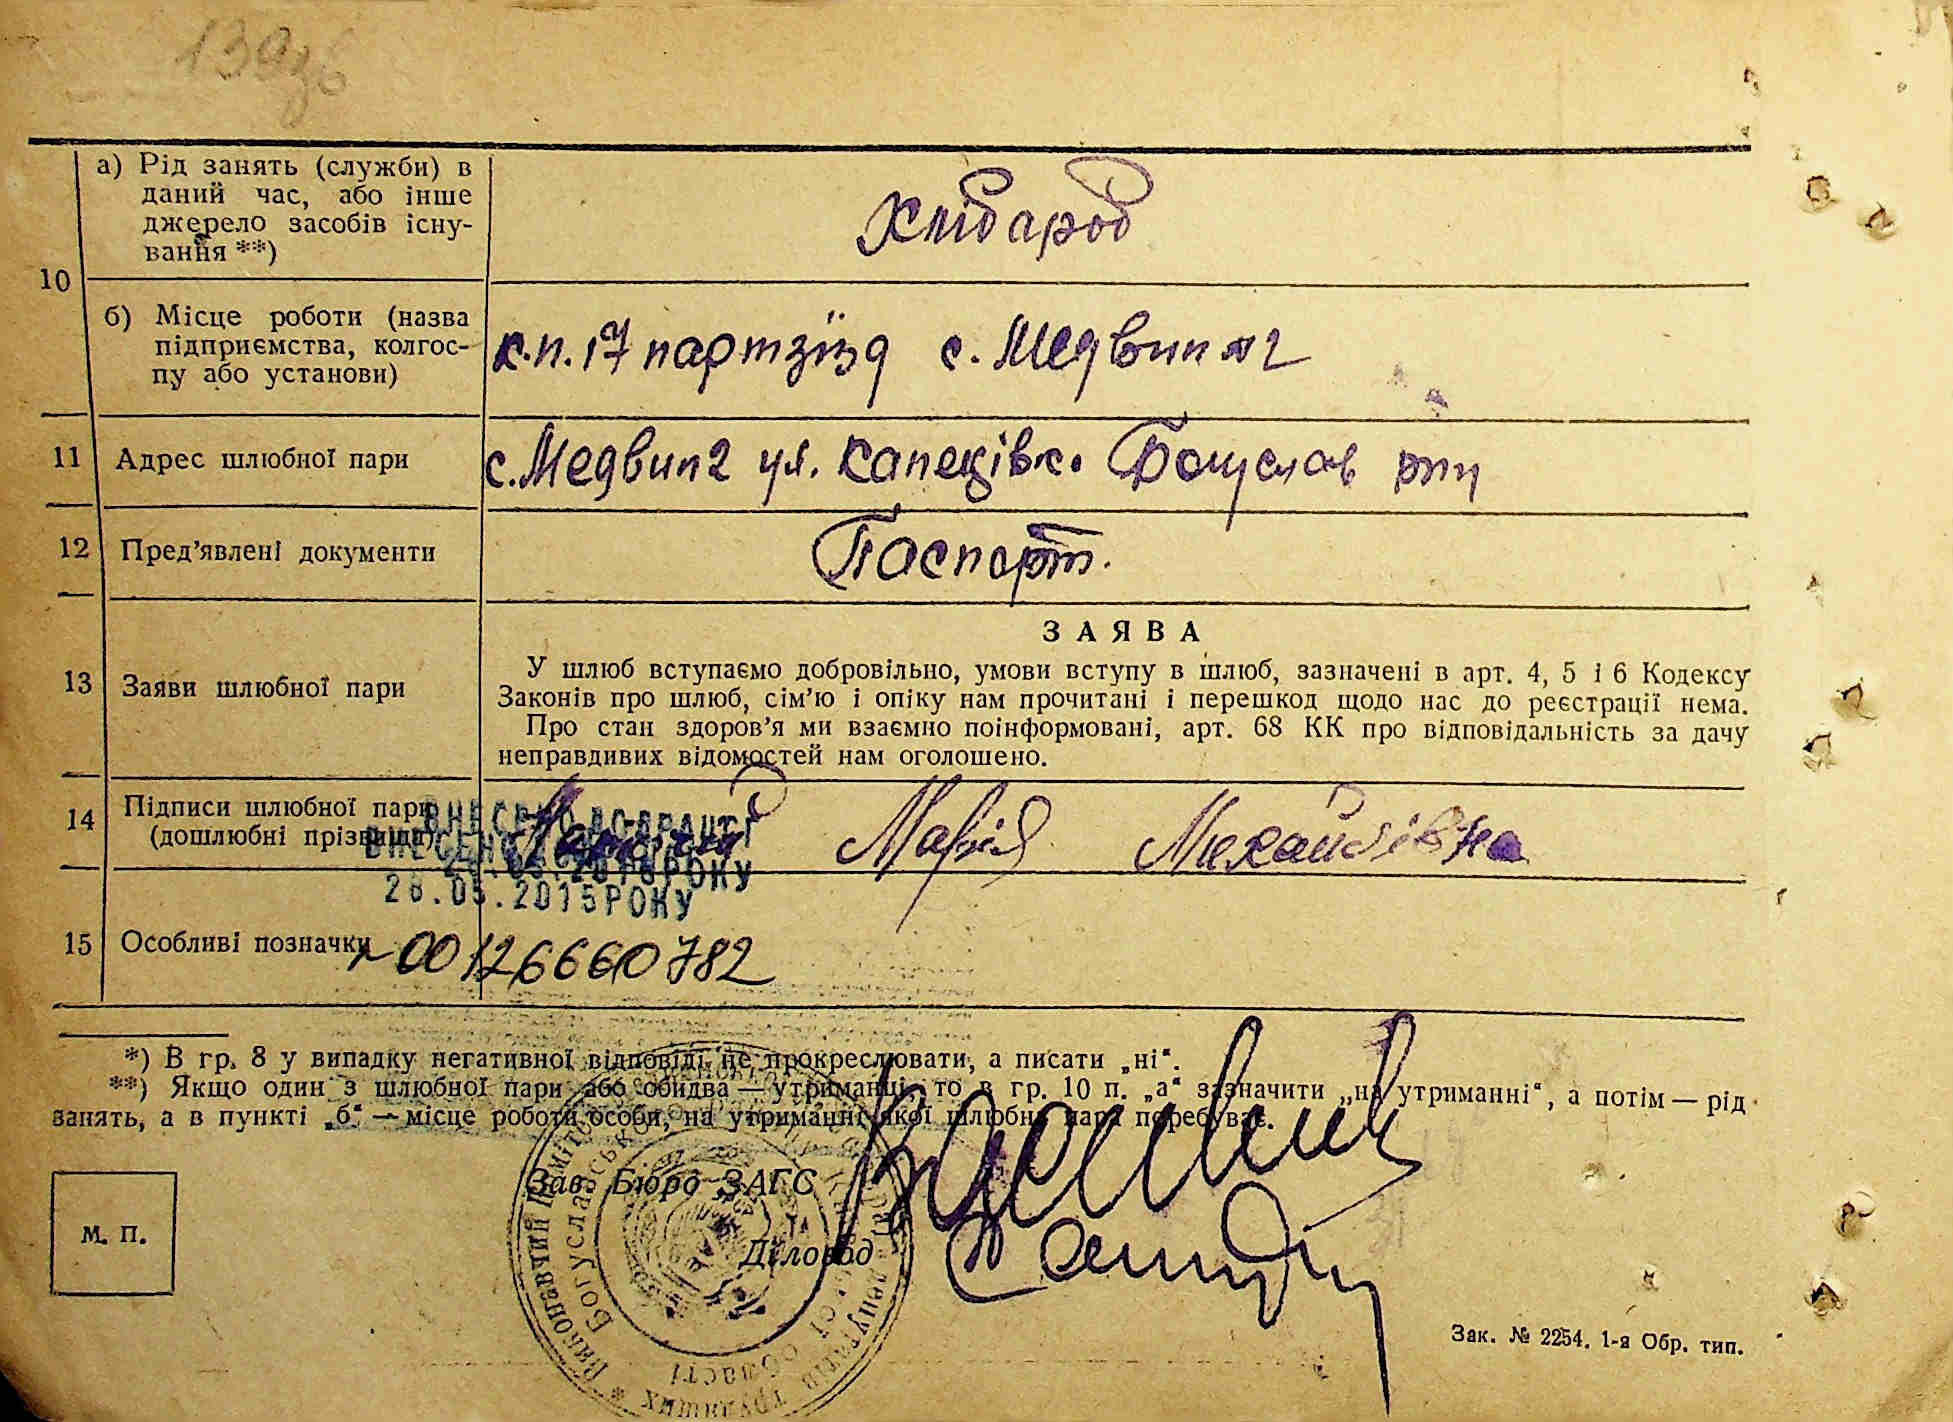 10
а) Рід занять (служби) в
даний час, або інше
джерело засобів існу-
вання **)
Хлібароб
б) Місце роботи (назва
підприємства, колгос-
пу або установи)
к.п. 17 партзїзд с. Медвин № 2
11 Адрес шлюбної пари
с. Медвин 2 ул.
12 Пред’явлені документи
Паспорт.
13 Заяви шлюбної пари
ЗАЯВА
У шлюб вступаємо добровільно, умови вступу в шлюб, зазначені в арт. 4, 5 і 6 Кодексу
Законів про шлюб, сім’ю і опіку нам прочитані і перешкод щодо нас до реєстрації нема.
Про стан здоров’я ми взаємно поінформовані, арт. 68 КК про відповідальність за дачу
неправдивих відомостей нам оголошено.
14 Підписи шлюбної пари
(дошлюбні прізвища)
Марія Михайлівна
28.05.2015 РОКУ
15 Особливі позначки
00126660782
*) В гр. 8 у випадку негативної відповіді не прокреслювати, а писати „ні“.
**) Якщо один з шлюбної пари або обидва — утриманці, то в гр. 10 п. „а“ зазначити „на утриманні“, а потім — рід
занять, а в пункті „б“ — місце роботи особи, на утриманні якої шлюбна пара перебуває.
М. П.
Зав. Бюро ЗАГС
Діловод
Зак. № 2254. 1-я Обр. тип.